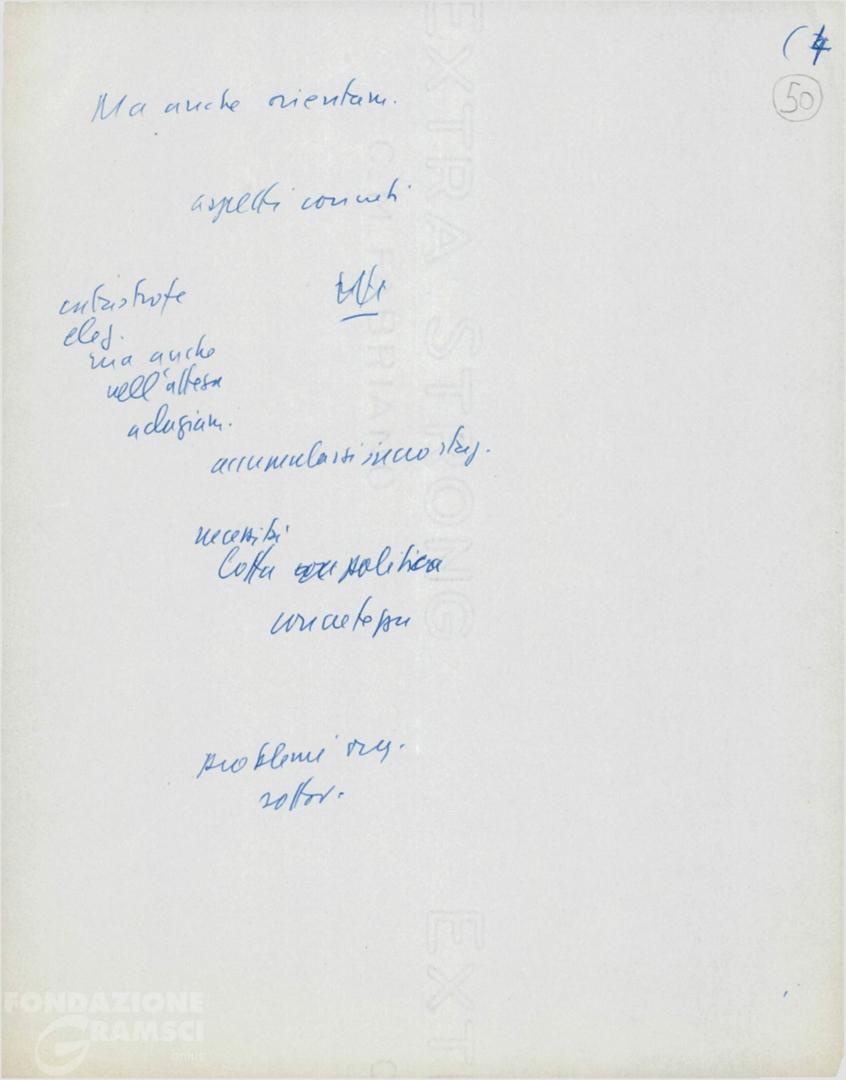 (4
50
Ma anche orientam.
aspetti concreti
catastrofe
eleg.
ma anche
nell'attesa
adagiam.
accumularsi incrostaz.
necessità
lotta politica
concretezza
problemi org.
sottov.
EXTRA STRONG
C.M.FABRIANO
EXT
FONDAZIONE
GRAMSCI
onlus